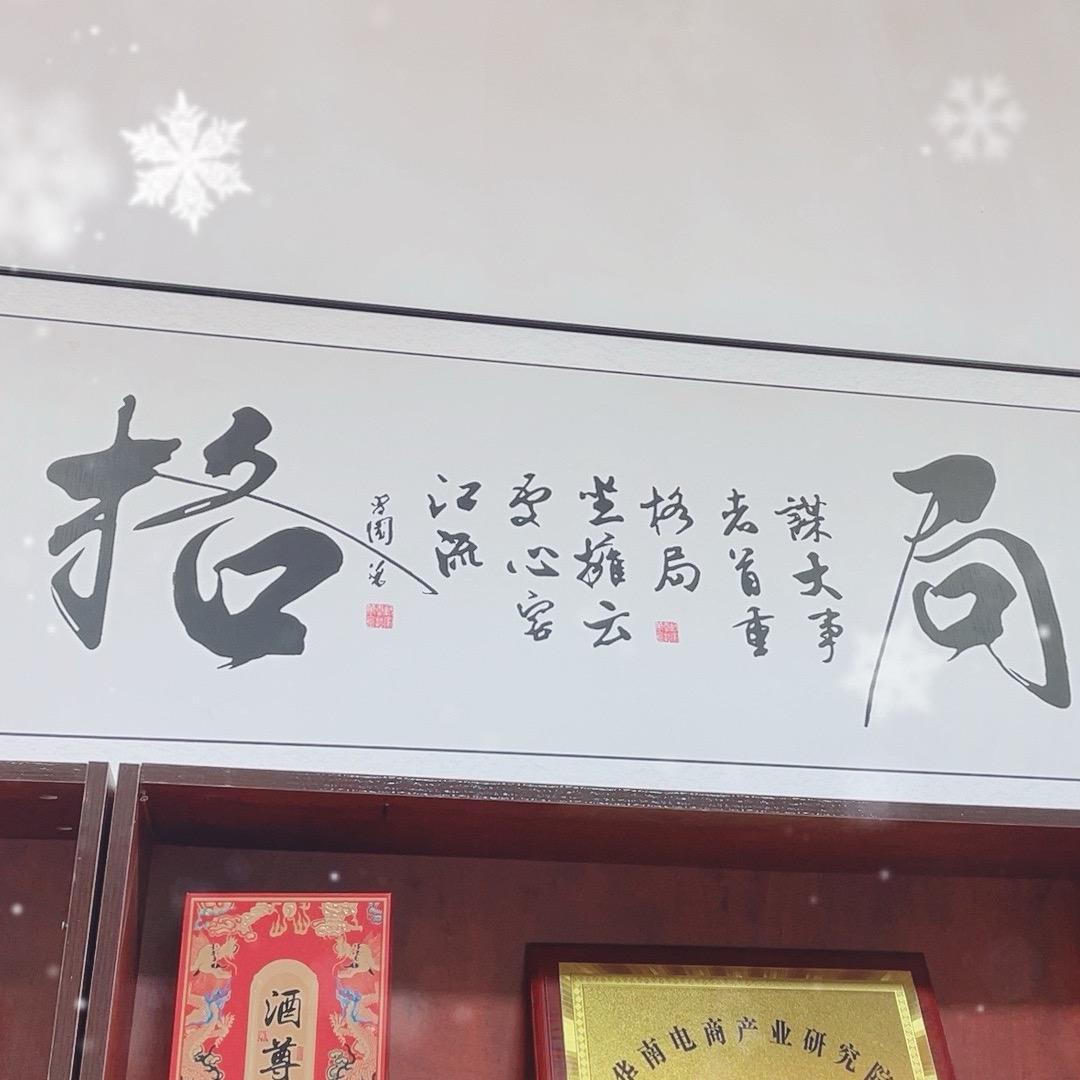 格局
謀大事
者首重
格局
坐擁云
心容
江流
酒尊
华南电商产业研究院